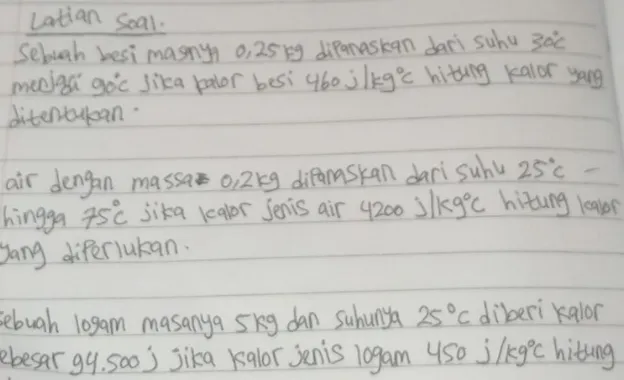 Latian Soal.
Sebuah besi masnya 0,25 kg dipanaskan dari suhu 30°c
menjadi 90°c jika kalor besi 460 j/kg°c hitung kalor yang
ditentukan.
air dengan massa 0,2 kg dipanaskan dari suhu 25°c -
hingga 75°c jika kalor jenis air 4200 j/kg°c hitung kalor
yang diperlukan.
sebuah logam masanya 5 kg dan suhunya 25°c diberi kalor
ebesar 94.500 j jika kalor jenis logam 450 j/kg°c hitung